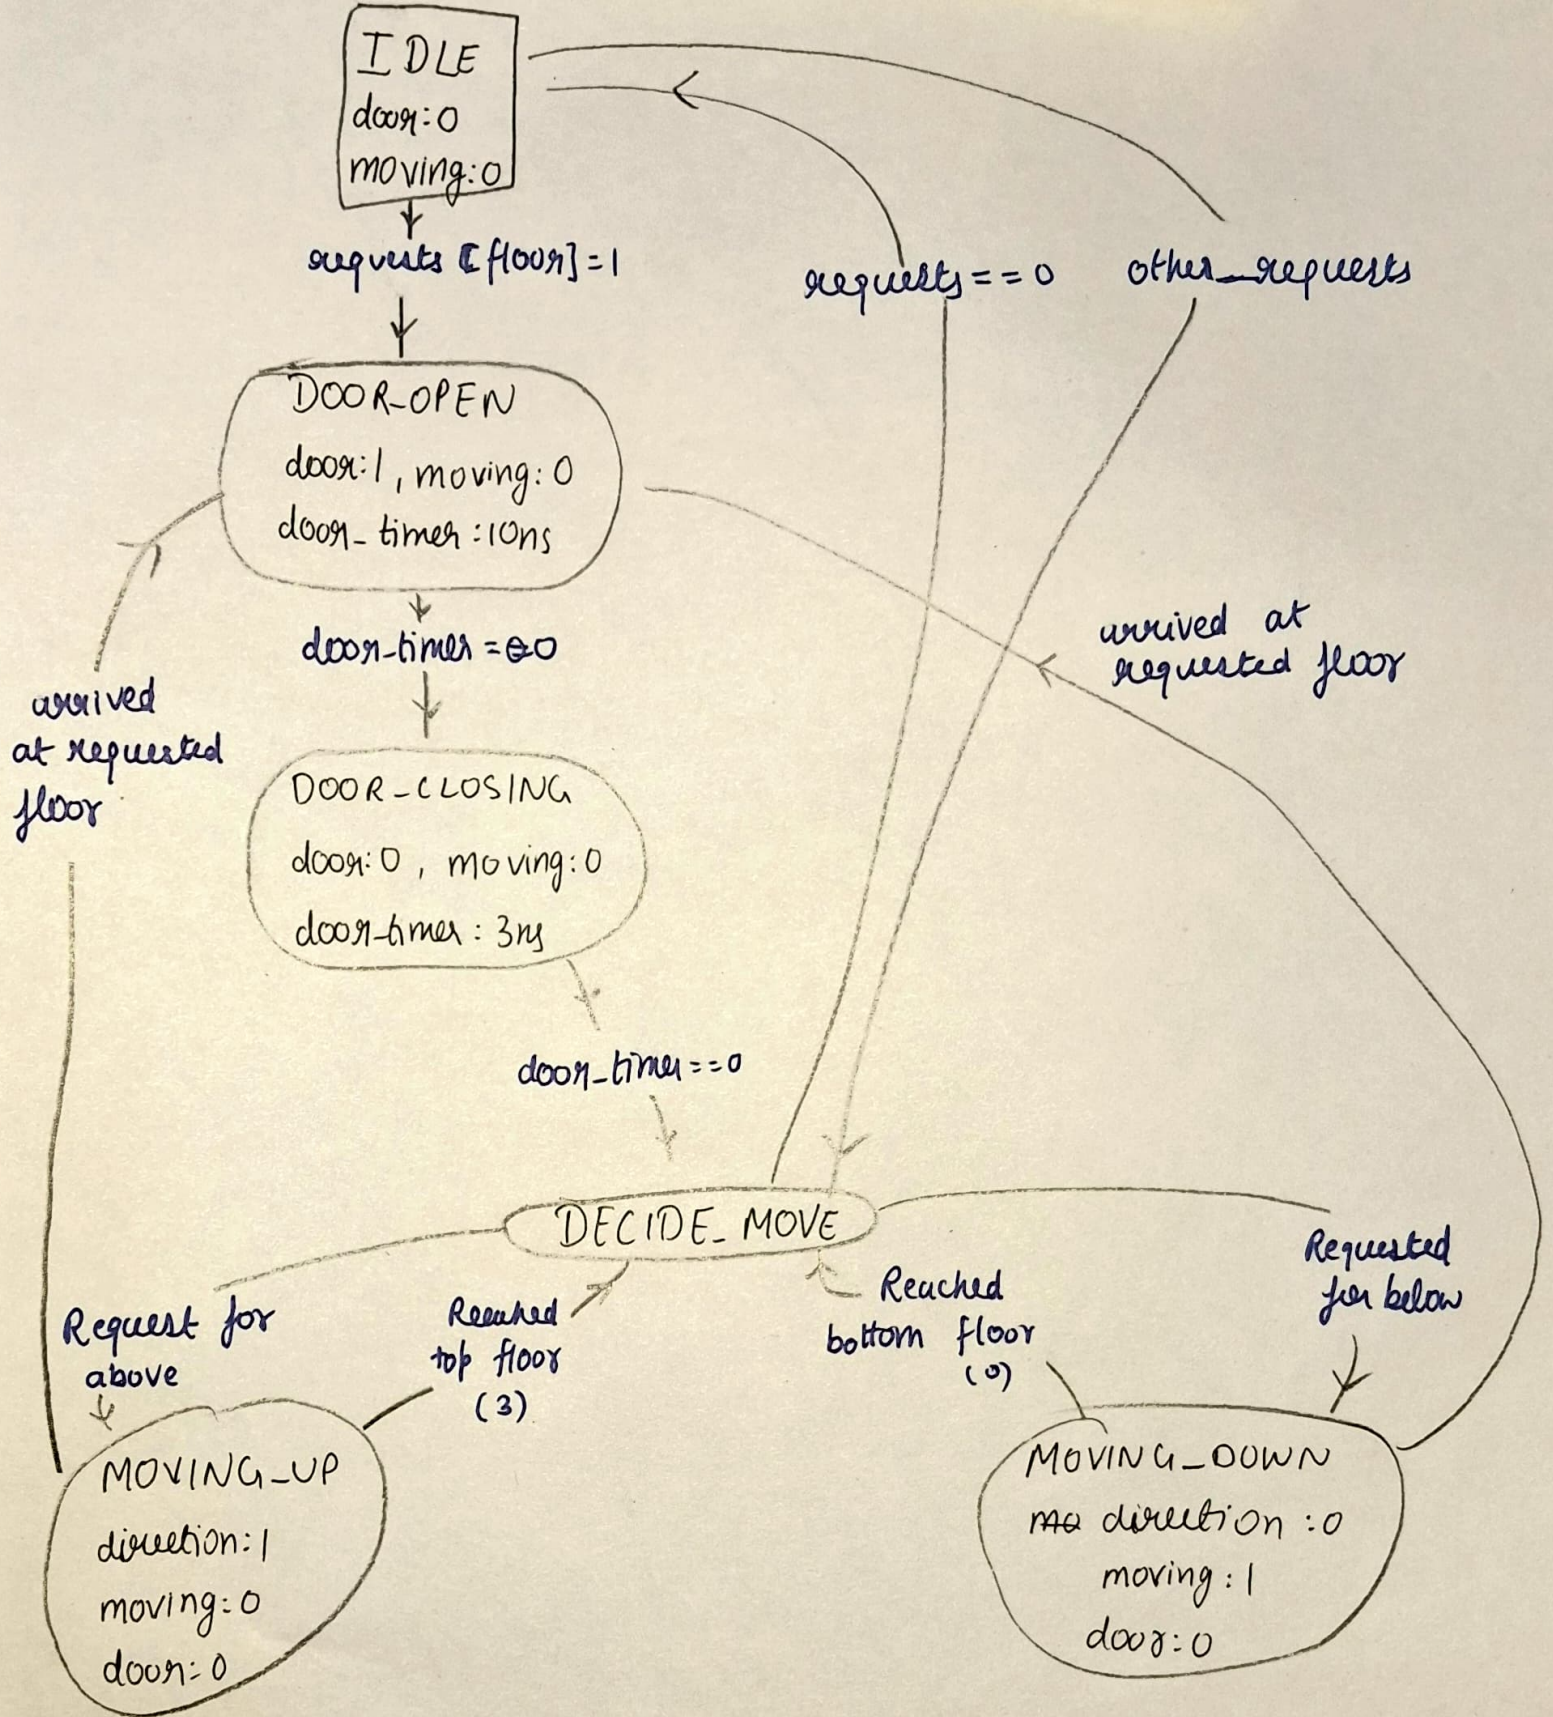 IDLE
door:0
moving:0
requests [floor]=1
requests==0
other_requests
DOOR_OPEN
door:1, moving:0
door_timer:10ns
door_timer ==0
arrived at
requested floor
arrived
at requested
floor
DOOR_CLOSING
door:0, moving:0
door_timer: 3ns
door_timer==0
DECIDE_MOVE
Request for
above
Reached
top floor
(3)
Reached
bottom floor
(0)
Requested
for below
MOVING_UP
direction:1
moving:0
door:0
MOVING_DOWN
direction:0
moving:1
door:0